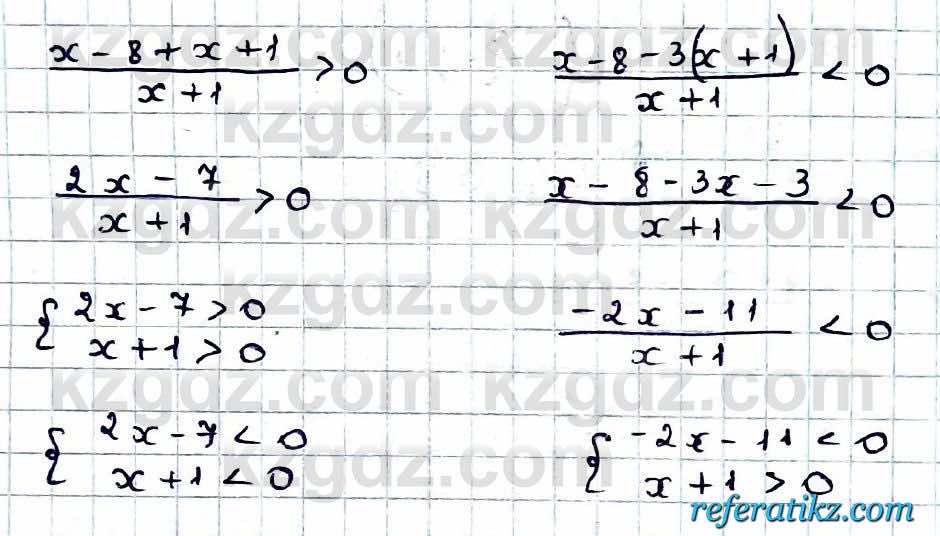 (x - 8 + x + 1)/(x + 1) > 0
(2x - 7)/(x + 1) > 0
{ 2x - 7 > 0
x + 1 > 0
{ 2x - 7 < 0
x + 1 < 0
(x - 8 - 3(x + 1))/(x + 1) < 0
(x - 8 - 3x - 3)/(x + 1) < 0
(-2x - 11)/(x + 1) < 0
{ -2x - 11 < 0
x + 1 > 0
kzgdz.com
kzgdz.com
kzgdz.com
kzgdz.com
kzgdz.com
kzgdz.com
kzgdz.com
kzgdz.com
referatikz.com